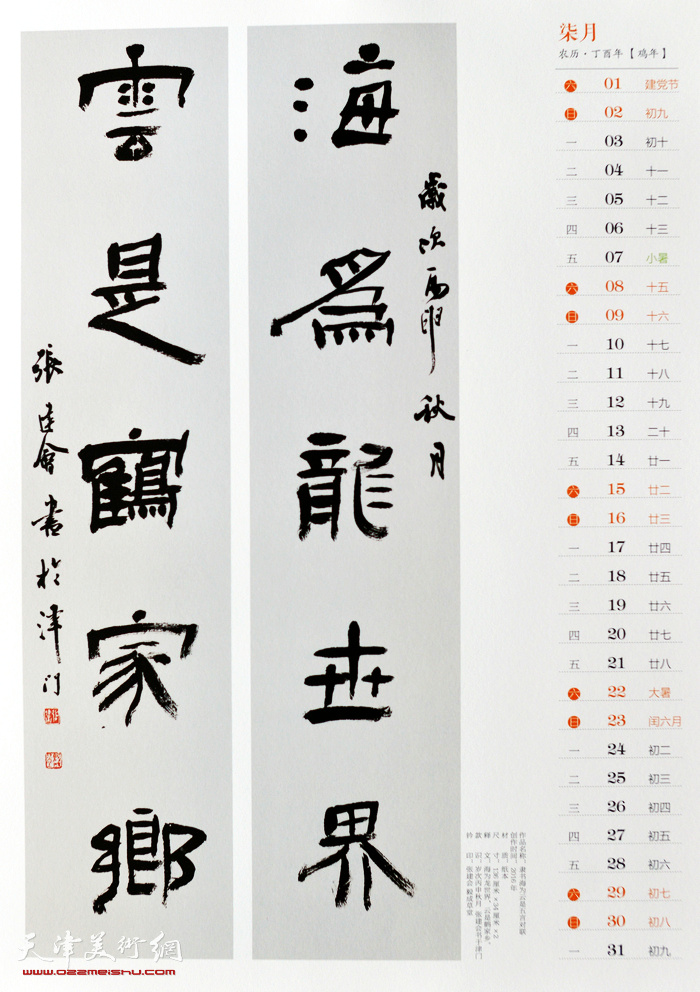 海為龍世界
歲次丙申秋月
雲是鶴家鄉
張建會書於津门
柒月
农历·丁酉年【鸡年】
六 01 建党节
日 02 初九
一 03 初十
二 04 十一
三 05 十二
四 06 十三
五 07 小暑
六 08 十五
日 09 十六
一 10 十七
二 11 十八
三 12 十九
四 13 二十
五 14 廿一
六 15 廿二
日 16 廿三
一 17 廿四
二 18 廿五
三 19 廿六
四 20 廿七
五 21 廿八
六 22 大暑
日 23 闰六月
一 24 初二
二 25 初三
三 26 初四
四 27 初五
五 28 初六
六 29 初七
日 30 初八
一 31 初九
作品名称：隶书海为云是五言对联
创作时间：2016年
材 质：纸本
尺 寸：136厘米×34厘米×2
释 文：海为龙世界，云是鹤家乡。
款 识：岁次丙申秋月 张建会书于津门
钤 印：张建会 毅成草堂
天津美術網
www.022meishu.com